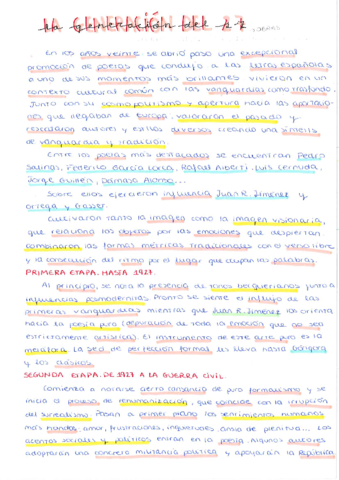 LA GENERACIÓN DEL 27
En los años veinte se abrió paso una excepcional
promoción de poetas que condujo a las letras españolas
a uno de sus momentos más brillantes vivieron en un
contexto cultural común con las vanguardias como trasfondo.
Junto con su cosmopolitismo y apertura hacia las aportacio-
nes que llegaban de Europa, valoraron el pasado y
rescataron autores y estilos diversos creando una síntesis
de vanguardia y tradición
Entre los poetas más destacados se encuentran Pedro
Salinas, Federico García Lorca, Rafael Alberti, Luis Cernuda,
Jorge Guillén, Dámaso Alonso...
Sobre ellos ejercieron influencia Juan R. Jiménez y
Ortega y Gasset.
Cultivaron tanto la imagen como la imagen visionaria,
que relaciona los objetos por las emociones que despiertan,
combinaron las formas métricas tradicionales con el verso libre
y la consecución del ritmo por el lugar que ocupan las palabras.
PRIMERA ETAPA. HASTA 1927.
Al principio, se nota la presencia de tonos becquerianos junto a
influencias posmodernistas Pronto se siente el influjo de las
primeras vanguardias mientras que Juan R. Jiménez los orienta
hacia la poesía pura (depuración de toda la emoción que no sea
estrictamente artística) El instrumento de este arte puro es la
metáfora La sed de perfección formal les lleva hasta Góngora
y los clásicos.
SEGUNDA ETAPA. DE 1927 A LA GUERRA CIVIL
Comienza a notarse cierto cansancio de puro formalismo y se
inicia el proceso de rehumanización, que coincide con la irrupción
del surrealismo Pasan a primer plano los sentimientos humanos
más hondos: amor, frustraciones, inquietudes, ansia de plenitud... Los
acentos sociales y políticos entran en la poesía. Algunos autores
adoptarán una concreta militancia política y apoyarán la República